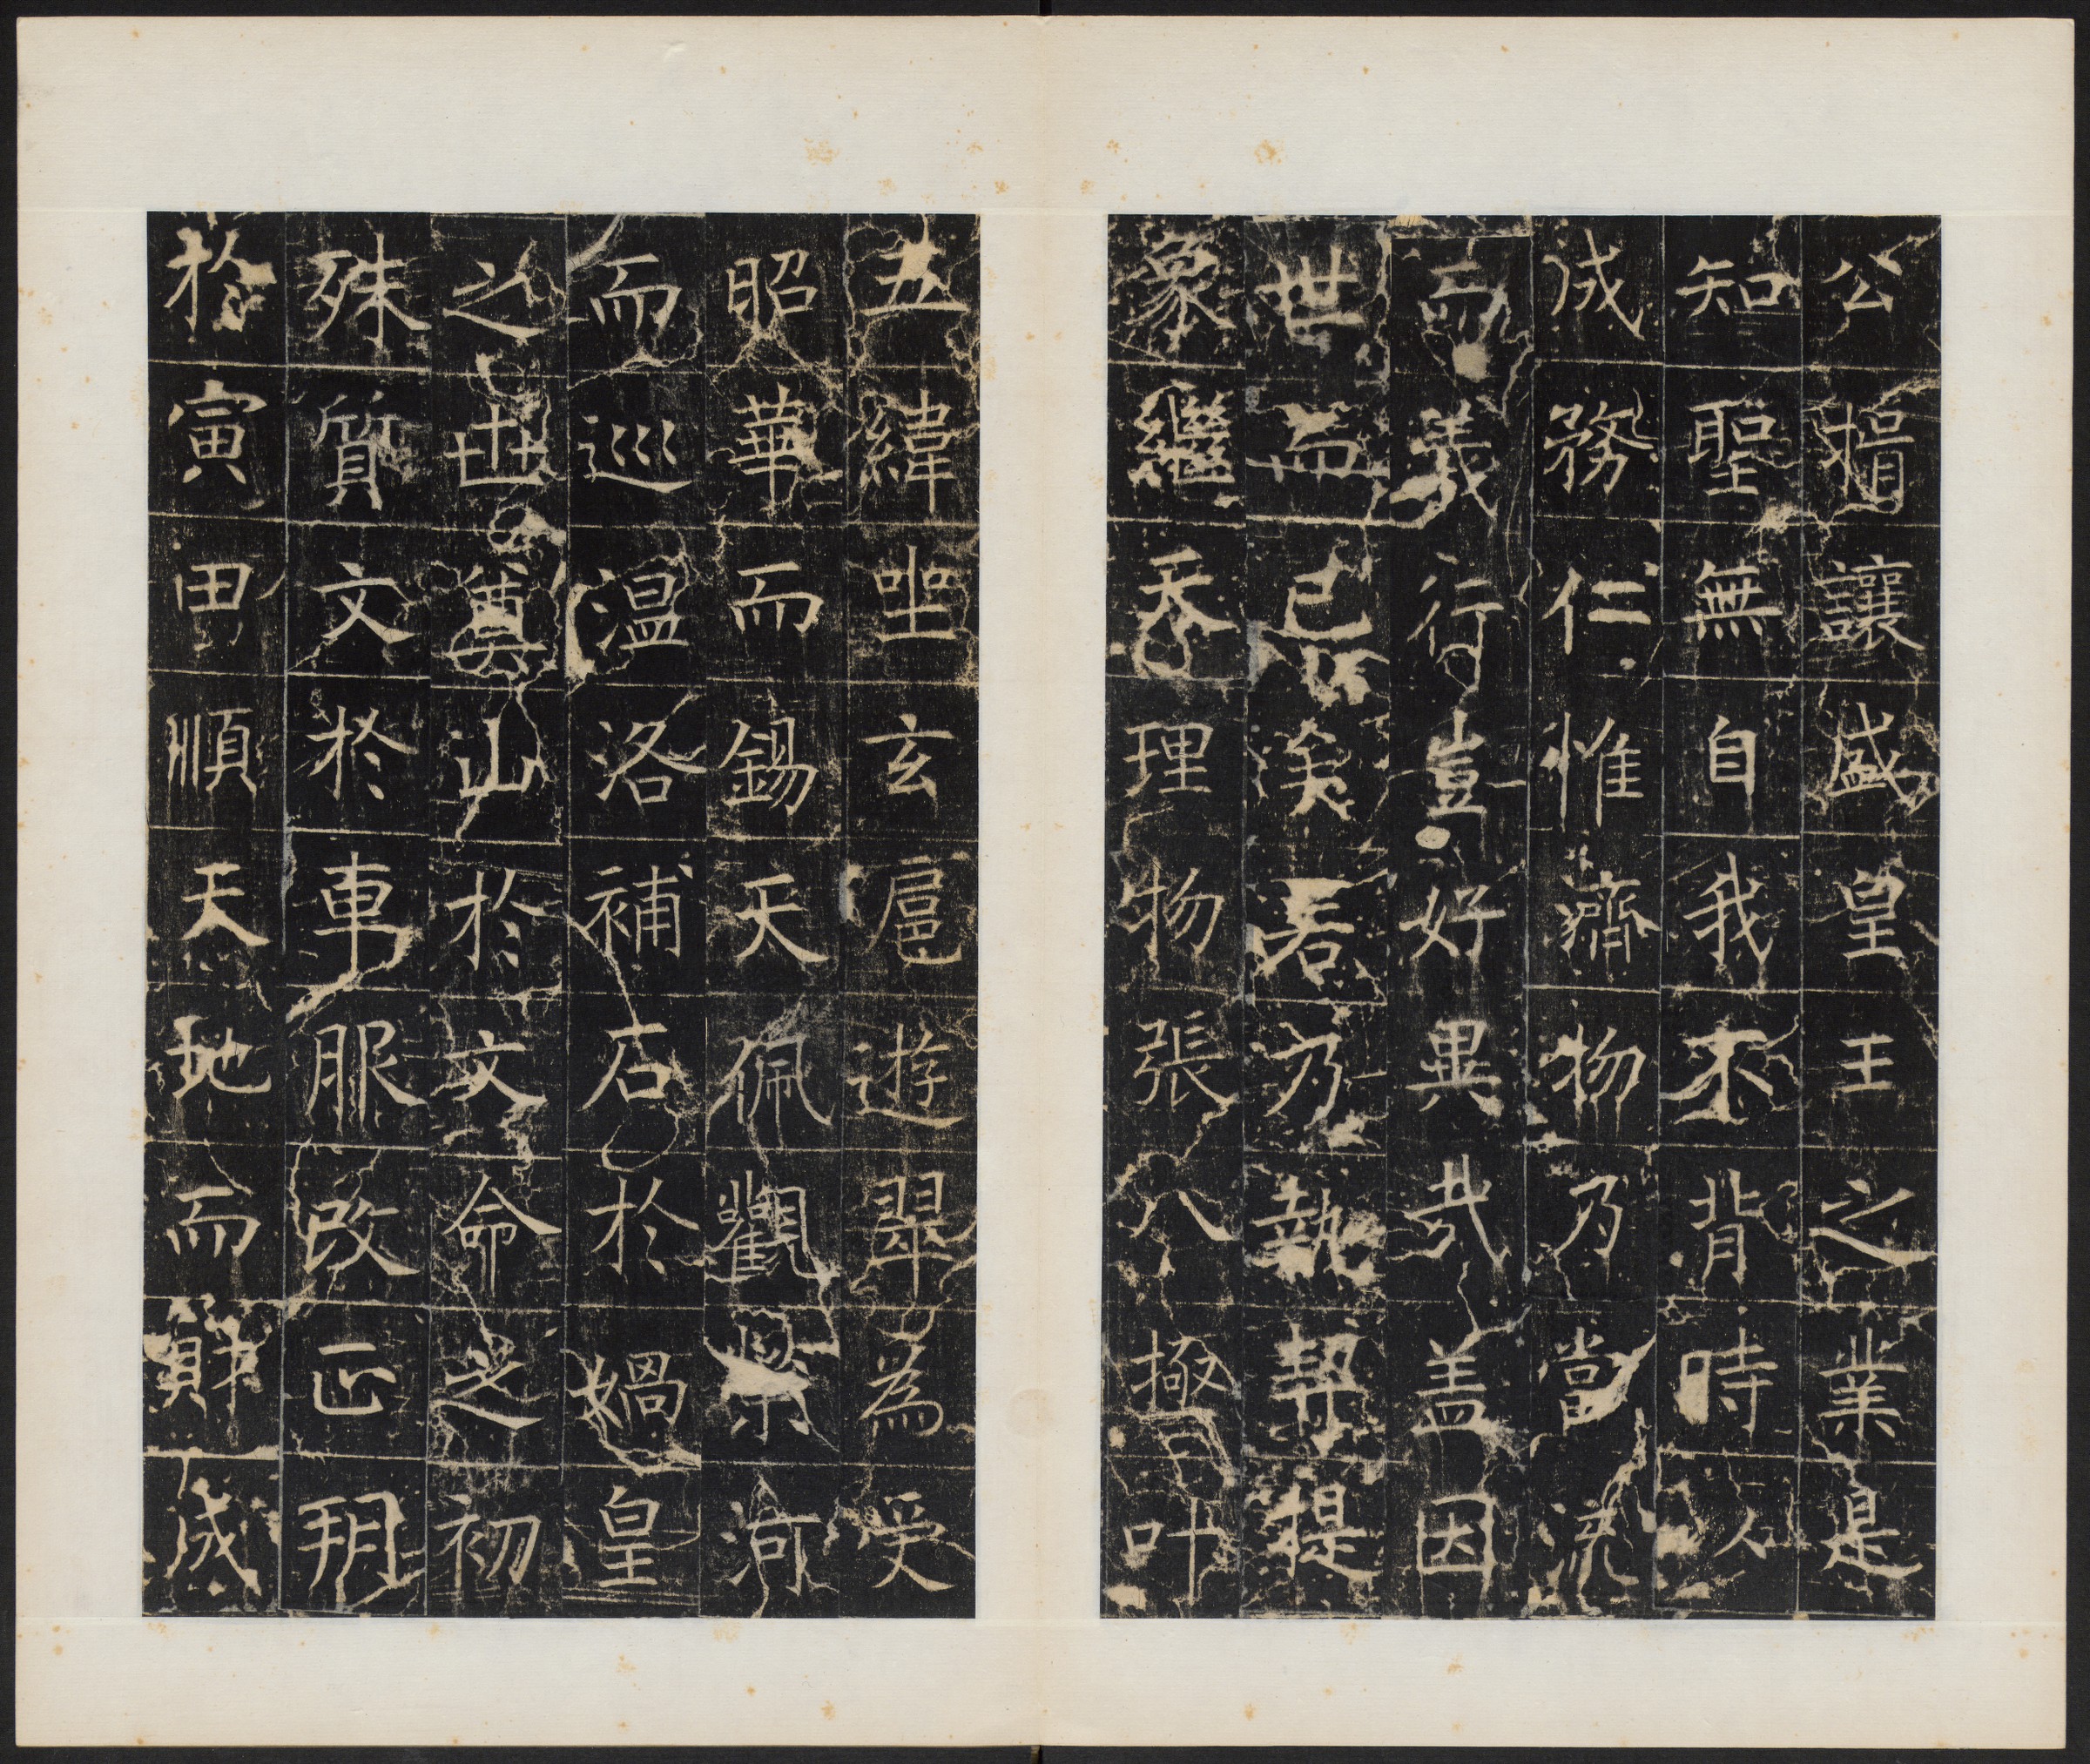 公揖讓盛皇王之業是
知聖無自我不背時以
成務仁惟濟物乃當流
而義行豈好異哉盖因
世而已矣若乃執契提
象繼天理物張八極叶
五緯坐玄扈遊翠為受
昭華而錫天佩觀榮河
而巡温洛補石於媧皇
之世奠山於文命之初
殊質文於車服改正朔
於寅甲順天地而財成